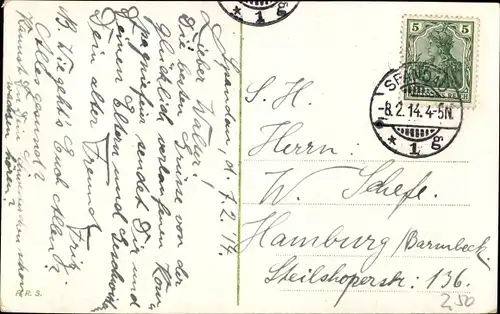 Spandau, d. 7.2.14.
Lieber Walter!
Die besten Grüsse von der
Glücklich verlaufenen Kom-
pagniefeier sendet Dir und
Deinen Eltern und Geschwistern
Dein alter Freund
Fritz.
B. Wie geht's Euch Allen?
Alles gesund?
Kannst Du Dein schon
hören?
R. R. S.
5
SPANDAU
-8.2.14.4-5N.
* 1 g
* 1 g
S. H.
Herrn:
W. Schefe.
Hamburg / Barmbeck
Steilshoperstr: 136.
2,50